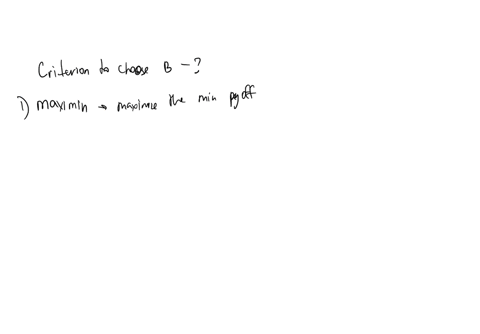 Criterion to choose B - ?
1) maximin → maximize the min payoff